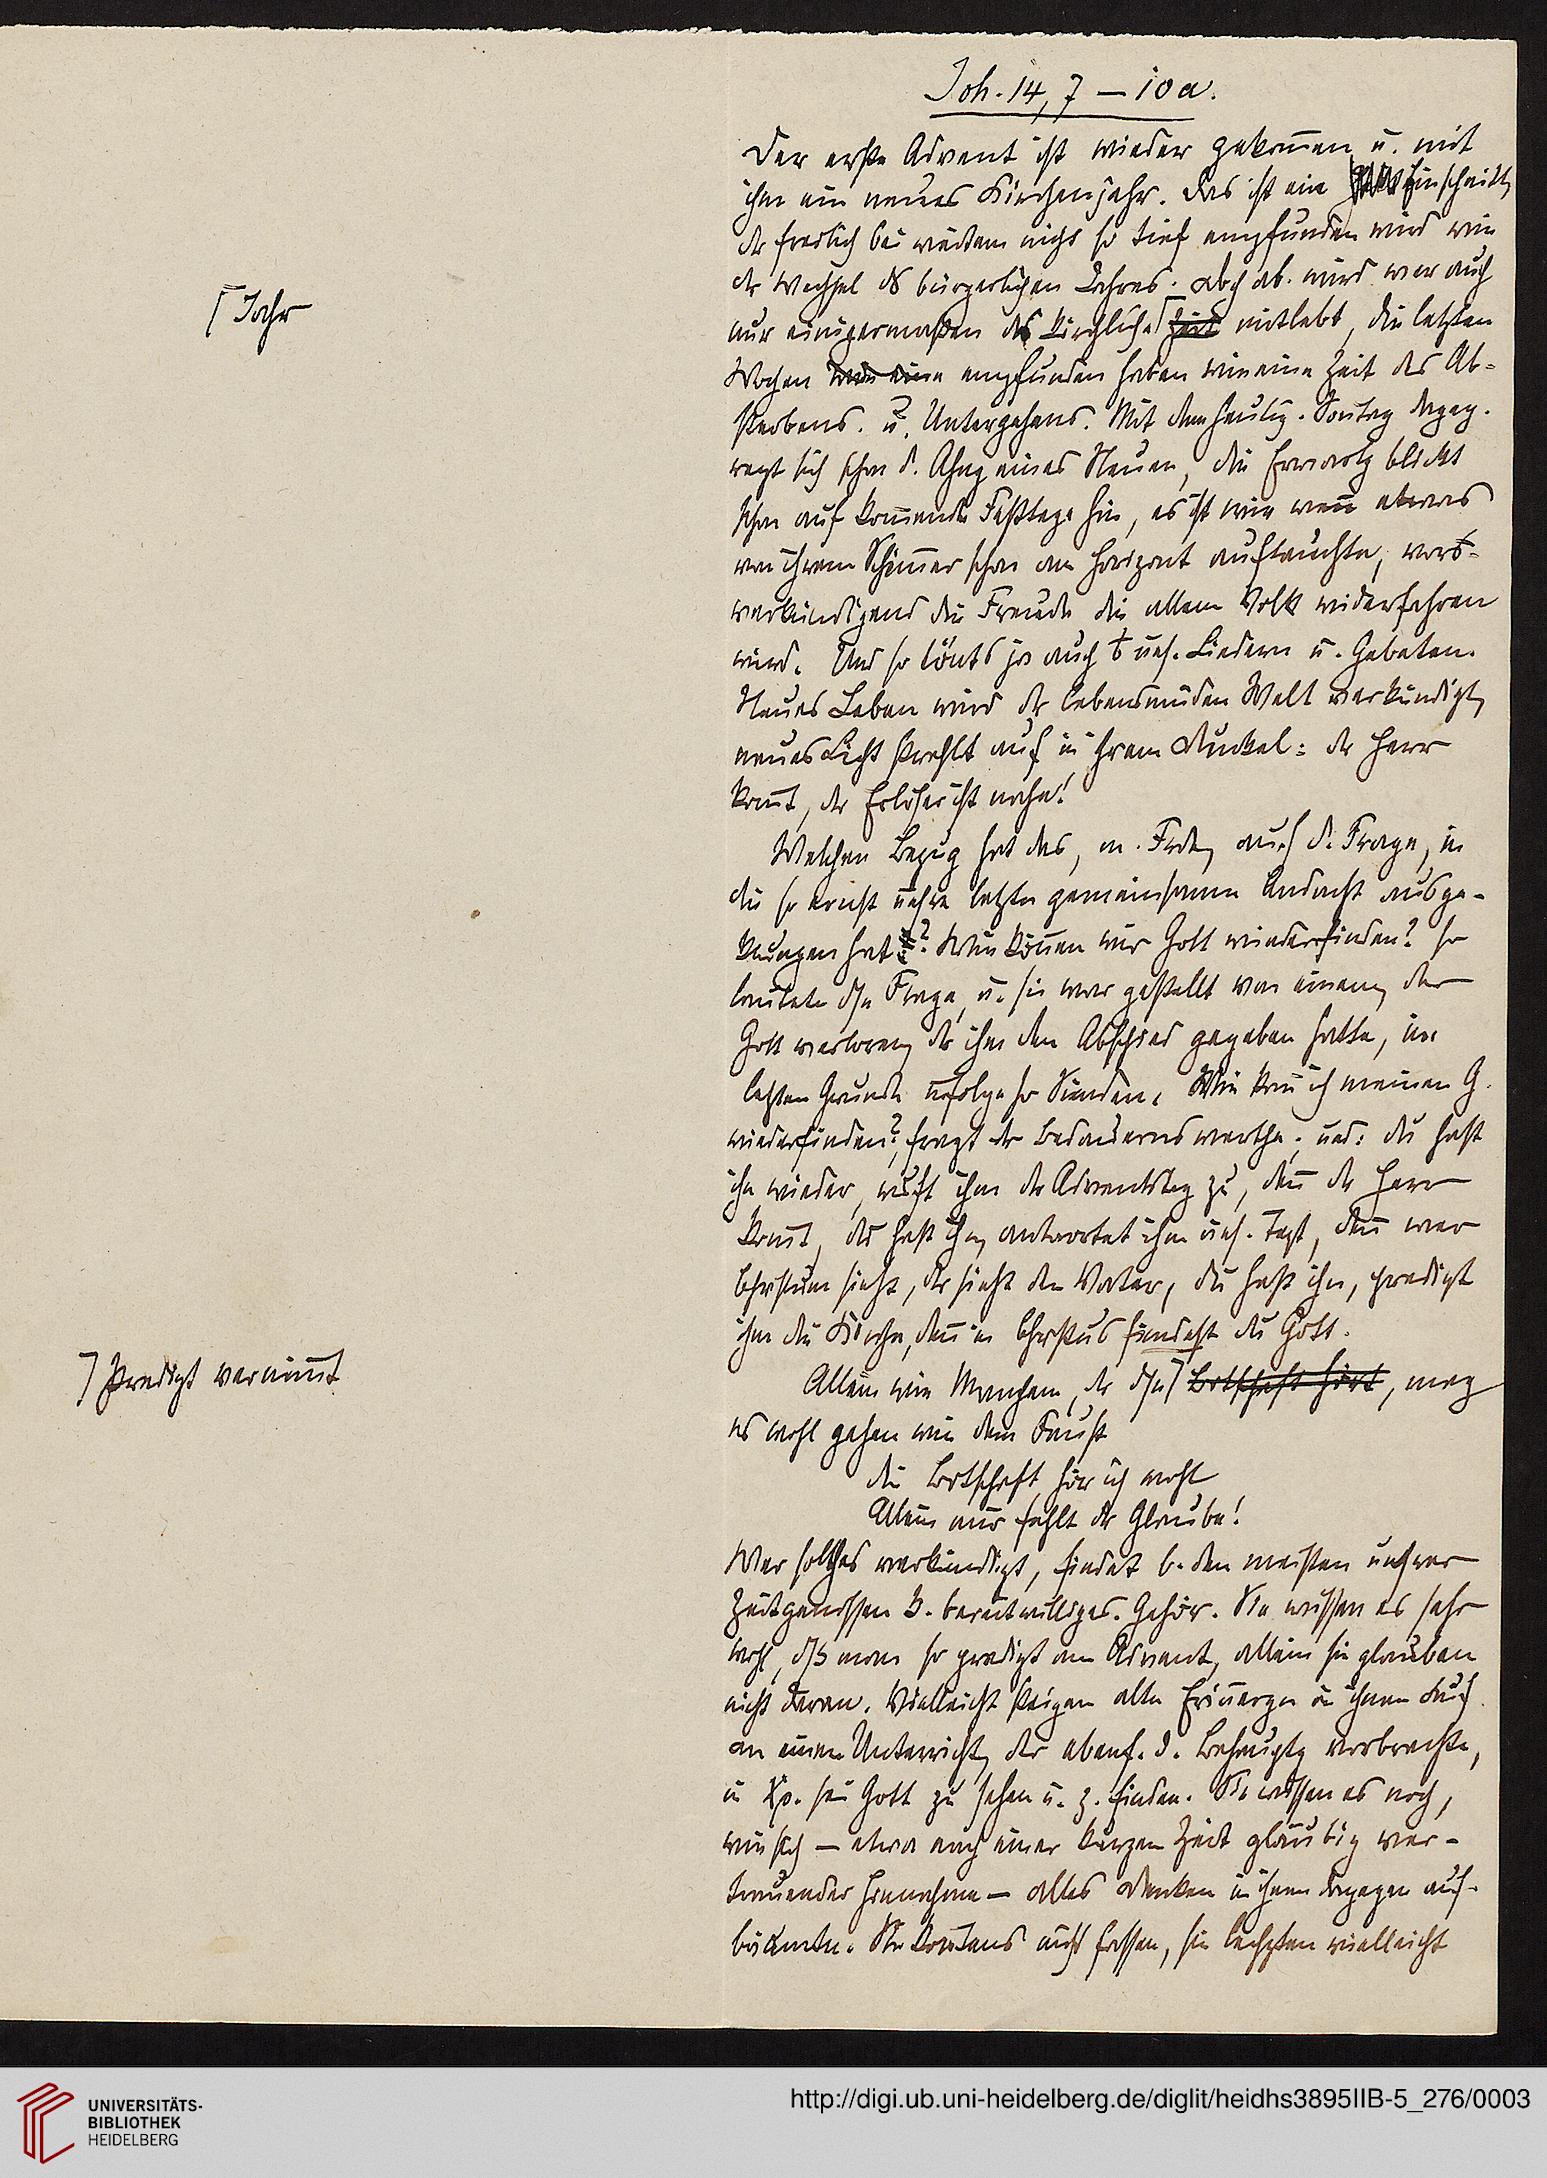 Joh. 14, 7 – 10 a.
Der erste Advent ist wieder gekom̄en, u. mit
ihm ein neues Kirchenjahr. Das ist ein Einschnitt,
der freilich bei weitem nicht so tief empfunden wird wie
der Wechsel des bürgerlichen Jahres. Doch ab. wird wer auch
⌈ Jahr
nur einigermaßen das kirchliche ⌈ Zeit mitlebt, die letzten
Wochen wie eine empfunden haben wie eine Zeit des Ab-
sterbens. u. Untergehens. Mit dem heutig. Sonntag dageg.
regt sich schon d. Ahng eines Neuen, die Erwartg blickt
schon auf kom̄ende Festtage hin, es ist wie wen̄ etwas
von ihrem Schim̄er schon am Horizont auftauchte,
verkündigend die Freude die allem Volk widerfahren
wird. Und so tönts ja auch uns. Liedern u. Gebeten.
Neues Leben wird der lebensmüden Welt verkündigt,
neues Licht strahlt auf in ihrem Dunkel: der Herr
kom̄t, der Erlöser ist nahe!
Welchen Bezug hat das, m. Frde, auf d. Frage, in
die so ernst unsre letzte gemeinsame Andacht ausge-
klungen hat? Wie kön̄en wir Gott wiederfinden? so
lautete dse Frage, u. sie war gestellt von einem, der
Gott verloren, der ihm den Abschied gegeben hatte, im
letzten Grunde infolge sr Sünden. Wie kan̄ ich meinen G.
wiederfinden?, fragt der Bedauernswerthe, und: du hast
ihn wieder, ruft ihm der Adventstag zu, den̄ der Herr
kom̄t, du hast ihn, antwortet ihm uns. Text, den̄ wer
Christum sieht, der sieht den Vater, du hast ihn, predigt
ihm die Kirche, den̄ in Christus findest du Gott.
⌉ Predigt vernim̄t
Allein wie Manchem, der dse ⌉ Botschaft hört, mag
es wohl gehen wie dem Faust
die Botschaft hör ich wohl
Allein mir fehlt der Glaube!
Wer solches verkündigt, findet b. den meisten unsrer
Zeitgenossen k. bereitwilliges Gehör. Sie wissen es sehr
wohl, dss man so predigt am Advent, allein sie glauben
nicht daran. Vielleicht steigen alte Erin̄ergen in ihnen auf
an einen Unterricht, der ebenf. d. Behauptg vorbrachte,
in Xp. sei Gott zu sehen u. z. finden. Sie wissen es noch,
wie sich – etwa nach einer kurzen Zeit gläubig ver-
trauender Hinnahme – alles Denken in ihnen dagegen auf-
bäumte. Sie kon̄tens nicht fassen, sie lechzten vielleicht
UNIVERSITÄTS-
BIBLIOTHEK
HEIDELBERG
http://digi.ub.uni-heidelberg.de/diglit/heidhs3895IIB-5_276/0003